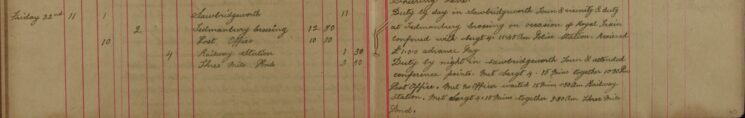 Friday 22nd 11 1 Sawbridgeworth 11
2 Tednambury Crossing 12 30
10 Post Office 10 30
4 Railway Station 1 30
Three Mile Pond 3
Duty by day in Sawbridgeworth Town & vicinity & duty
at Tednambury Crossing on occasion of Royal Train
conferred with Sergt 4 Police Station. Received
advance Pay
Duty by night in Sawbridgeworth Town & attended
conference points. Met Sergt 4 - 15 Mins together 10.30 Pm
Post Office. Met no Officer waited 15 Min 1.30 Am Railway
Station. Met Sergt 4 15 Mins together 3.30 Am Three Mile
Pond.